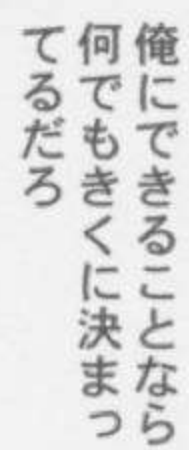 俺にできることなら
何でもきくに決まっ
てるだろ